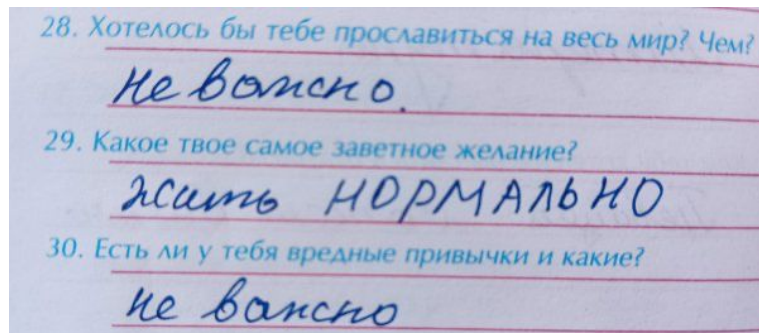 28. Хотелось бы тебе прославиться на весь мир? Чем?
не важно.
29. Какое твое самое заветное желание?
жить НОРМАЛЬНО
30. Есть ли у тебя вредные привычки и какие?
не важно